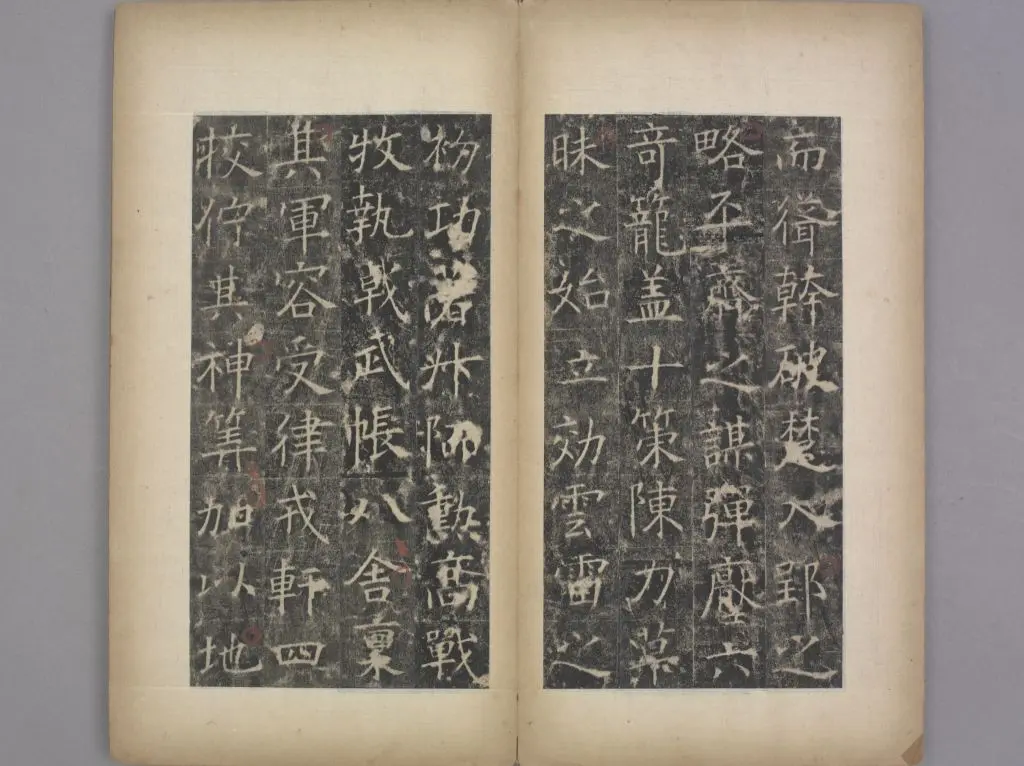 而幹破楚入郢之
略平齊之謀彈壓六
奇籠盖十策陳力草
昧之始立効雲雷之
初功著升陑勲高戰
牧執戟武帳八舍稟
其軍容受律戎軒四
校佇其神筭加以地